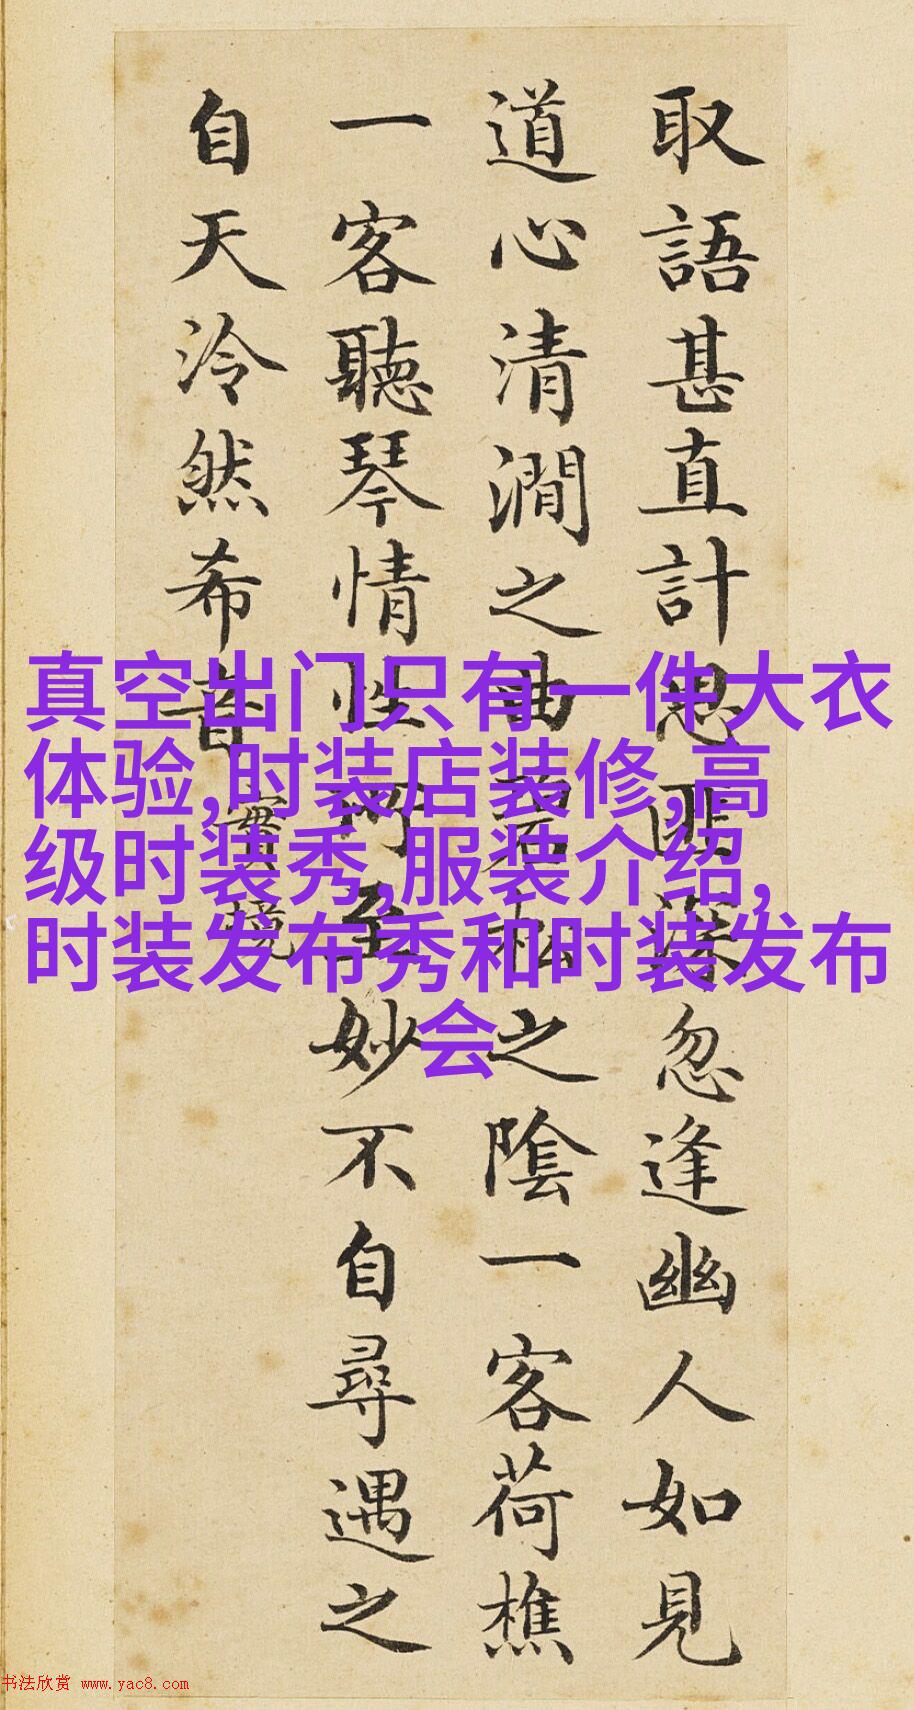 取語甚直計思匪深忽逢幽人如見
道心清澗之曲碧松之陰一客荷樵
一客聽琴情性所至妙不自尋遇之
自天泠然希音
實境
真空出门只有一件大衣
体验,时装店装修,高
级时装秀,服装介绍,
时装发布秀和时装发布
会
书法欣赏 www.yac8.com